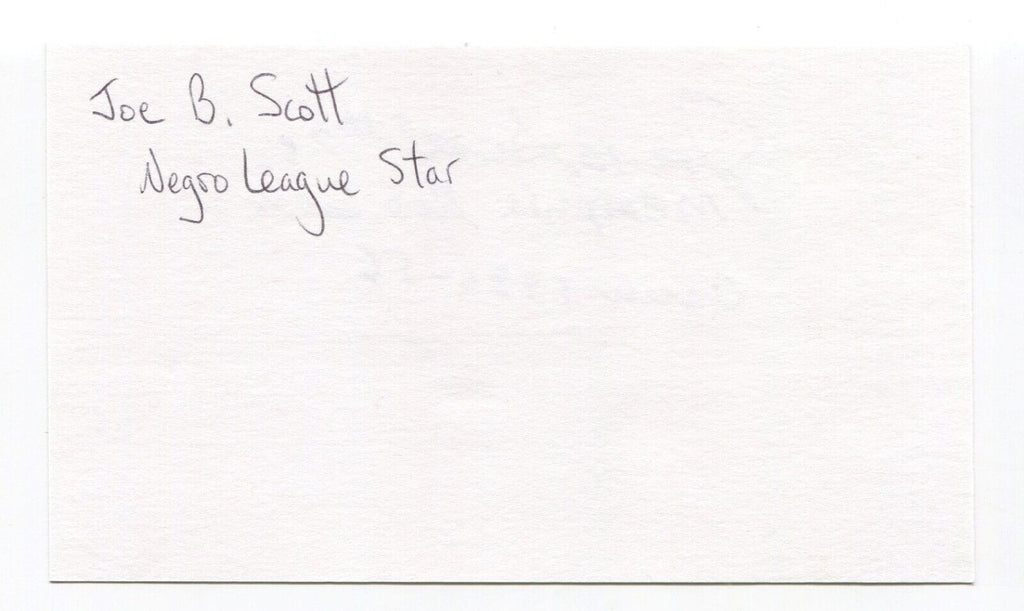 Joe B. Scott
Negro League Star